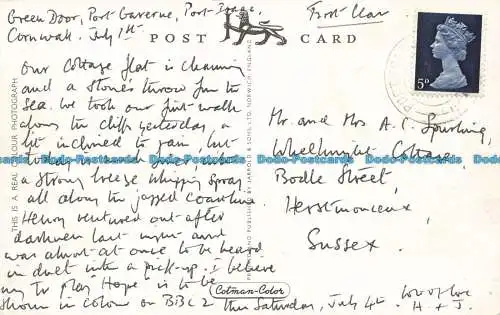 Green Door, Port Gaverne, Port Isaac,
Cornwall. July 1st
First Class
POST CARD
5D
Our Cottage flat is charming
and a stone's throw from the
sea. We took our first walk
along the cliffs yesterday, a
bit inclined to rain, but
today
a strong breeze whipping spray
all along the jagged coastline
Henry ventured out after
darkness last night and
was almost at once to be heard
in duet into a pick-up. I believe
my TV play 'Hope' is to be
shown in colour on BBC 2 this Saturday, July 4th.
Love
H + J.
Mr and Mrs A. C. Spurling,
Wheelwright Cottage,
Bodle Street,
Herstmonceux,
Sussex.
THIS IS A REAL COLOUR PHOTOGRAPH
PRINTED AND PUBLISHED BY JARROLD & SONS LTD, NORWICH, ENGLAND
Cotman-Color
Dodo-Postcards Dodo-Postcards Dodo-Postcards Dodo-Postcards Dodo-Postcards Dodo-Postcards